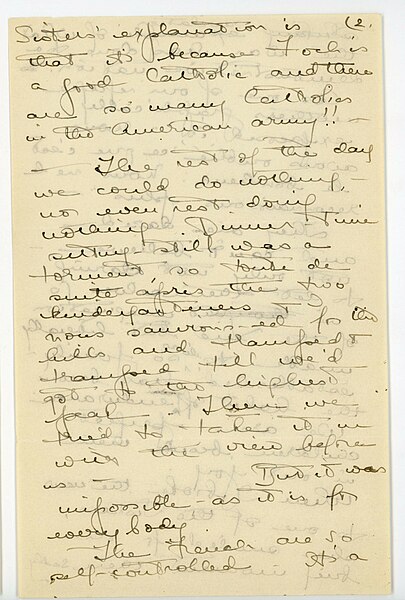 Sisters explanation is (2.
that it's because Foch is
a good Catholic and there
are so many Catholics
in the American army!!
- The rest of the day
we could do nothing -
not even rest doing
nothing. Dinner time
sitting still was a
torment, so toute de
suite après the two
kindergartners & I
nous sauvons-ed for the
hills and tramped &
tramped till we'd
got to the highest
peak. Then we
tried to take it in
with the view before
us - But it was
impossible - as it is for
everybody.
The French are so
self-controlled. It's a